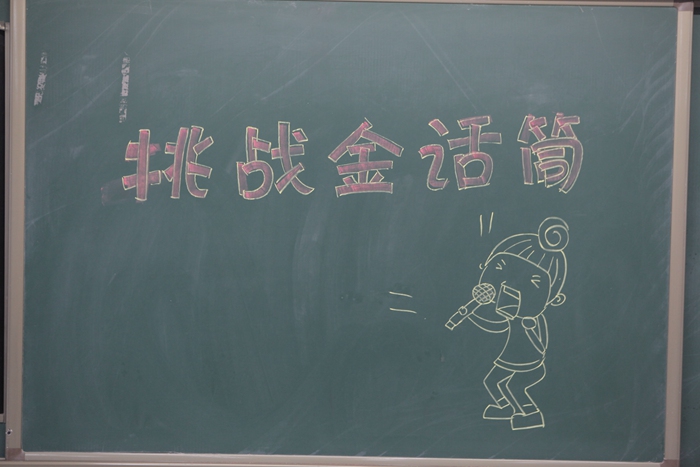 挑战金话筒